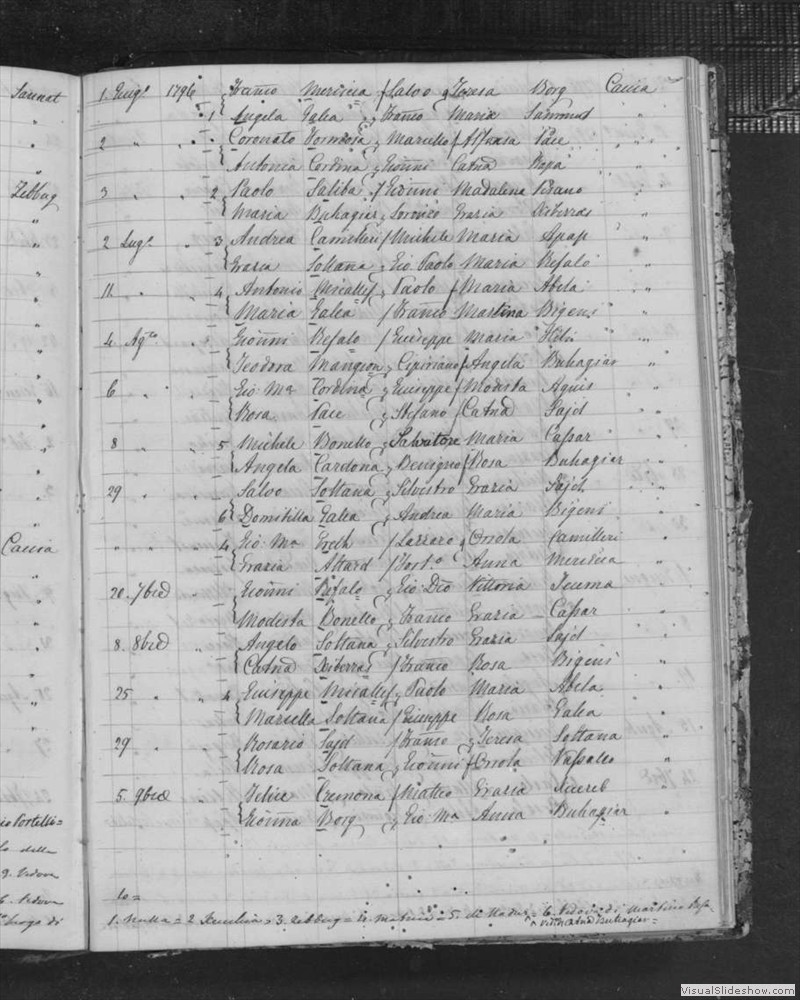 Sannat
Zebbug
Caccia
1. Giug.º 1796 Franco Mercieca / Salvo & Teresa Borg Caccia
1 Angela Galea & Franco Maria Sammut
2 Coronato Formosa & Marcello / Alfonsa Pace
Antonia Cordina & Gioñni Catña
3 2 Paolo Saliba / Gioñni Madalena Pisano
Maria Buhagiar & Grazia Xiberras
2 Lug.º 3 Andrea Camilleri / Michele Maria Apap
Grazia Soltana & Gio Paolo Maria Refalo
11 4 Antonio Micallef & Paolo / Maria Abela
Maria Galea / Franco Martina Bigeni
4 Ag.to Gioñni Refalo / Giuseppe Maria Heli
Teodora Mangion & Cipiriano / Angela Buhagiar
6 Gio Mª Cordina & Giuseppe / Modesta Agius
Rosa Pace & Stefano / Catña Sajd
8 5 Michele Bonello & Salvatore Maria Caspar
Angela Cardona & Benigno / Rosa Buhagiar
29 Salvo Soltana & Silvestro Grazia Sajd
6 Domitilla Galea & Andrea Maria Bigeni
4 Gio Mª Grech / Lazzero & Orsola Camilleri
Grazia Attard / Fort.º Anna Mercieca
20 7bre Gioñni Refalo & Gio Dio Vittoria Teuma
Modesta Bonello & Franco Grazia Caspar
8. 8bre Angelo Soltana & Silvestro Grazia Sajd
Catña Xiberras / Franco Rosa Bigeni
25 4 Giuseppe Micallef & Paolo Maria Abela
Marsella Soltana / Giuseppe Rosa Galea
29 Rosario Sajd / Franco & Teresa Soltana
Rosa Soltana & Gioñni / Orsola Vassallo
5. 9bre Felice Cremona / Matteo Grazia
Gioñna Borg & Gio Mª Anna Buhagiar
Portelli =
della
9. Vedova
6. Vedova
luogo di
1. Nulla = 2 = 3. Zebbug = 4. = 5. = 6. Vedova di Martino
VisualSlideshow.com